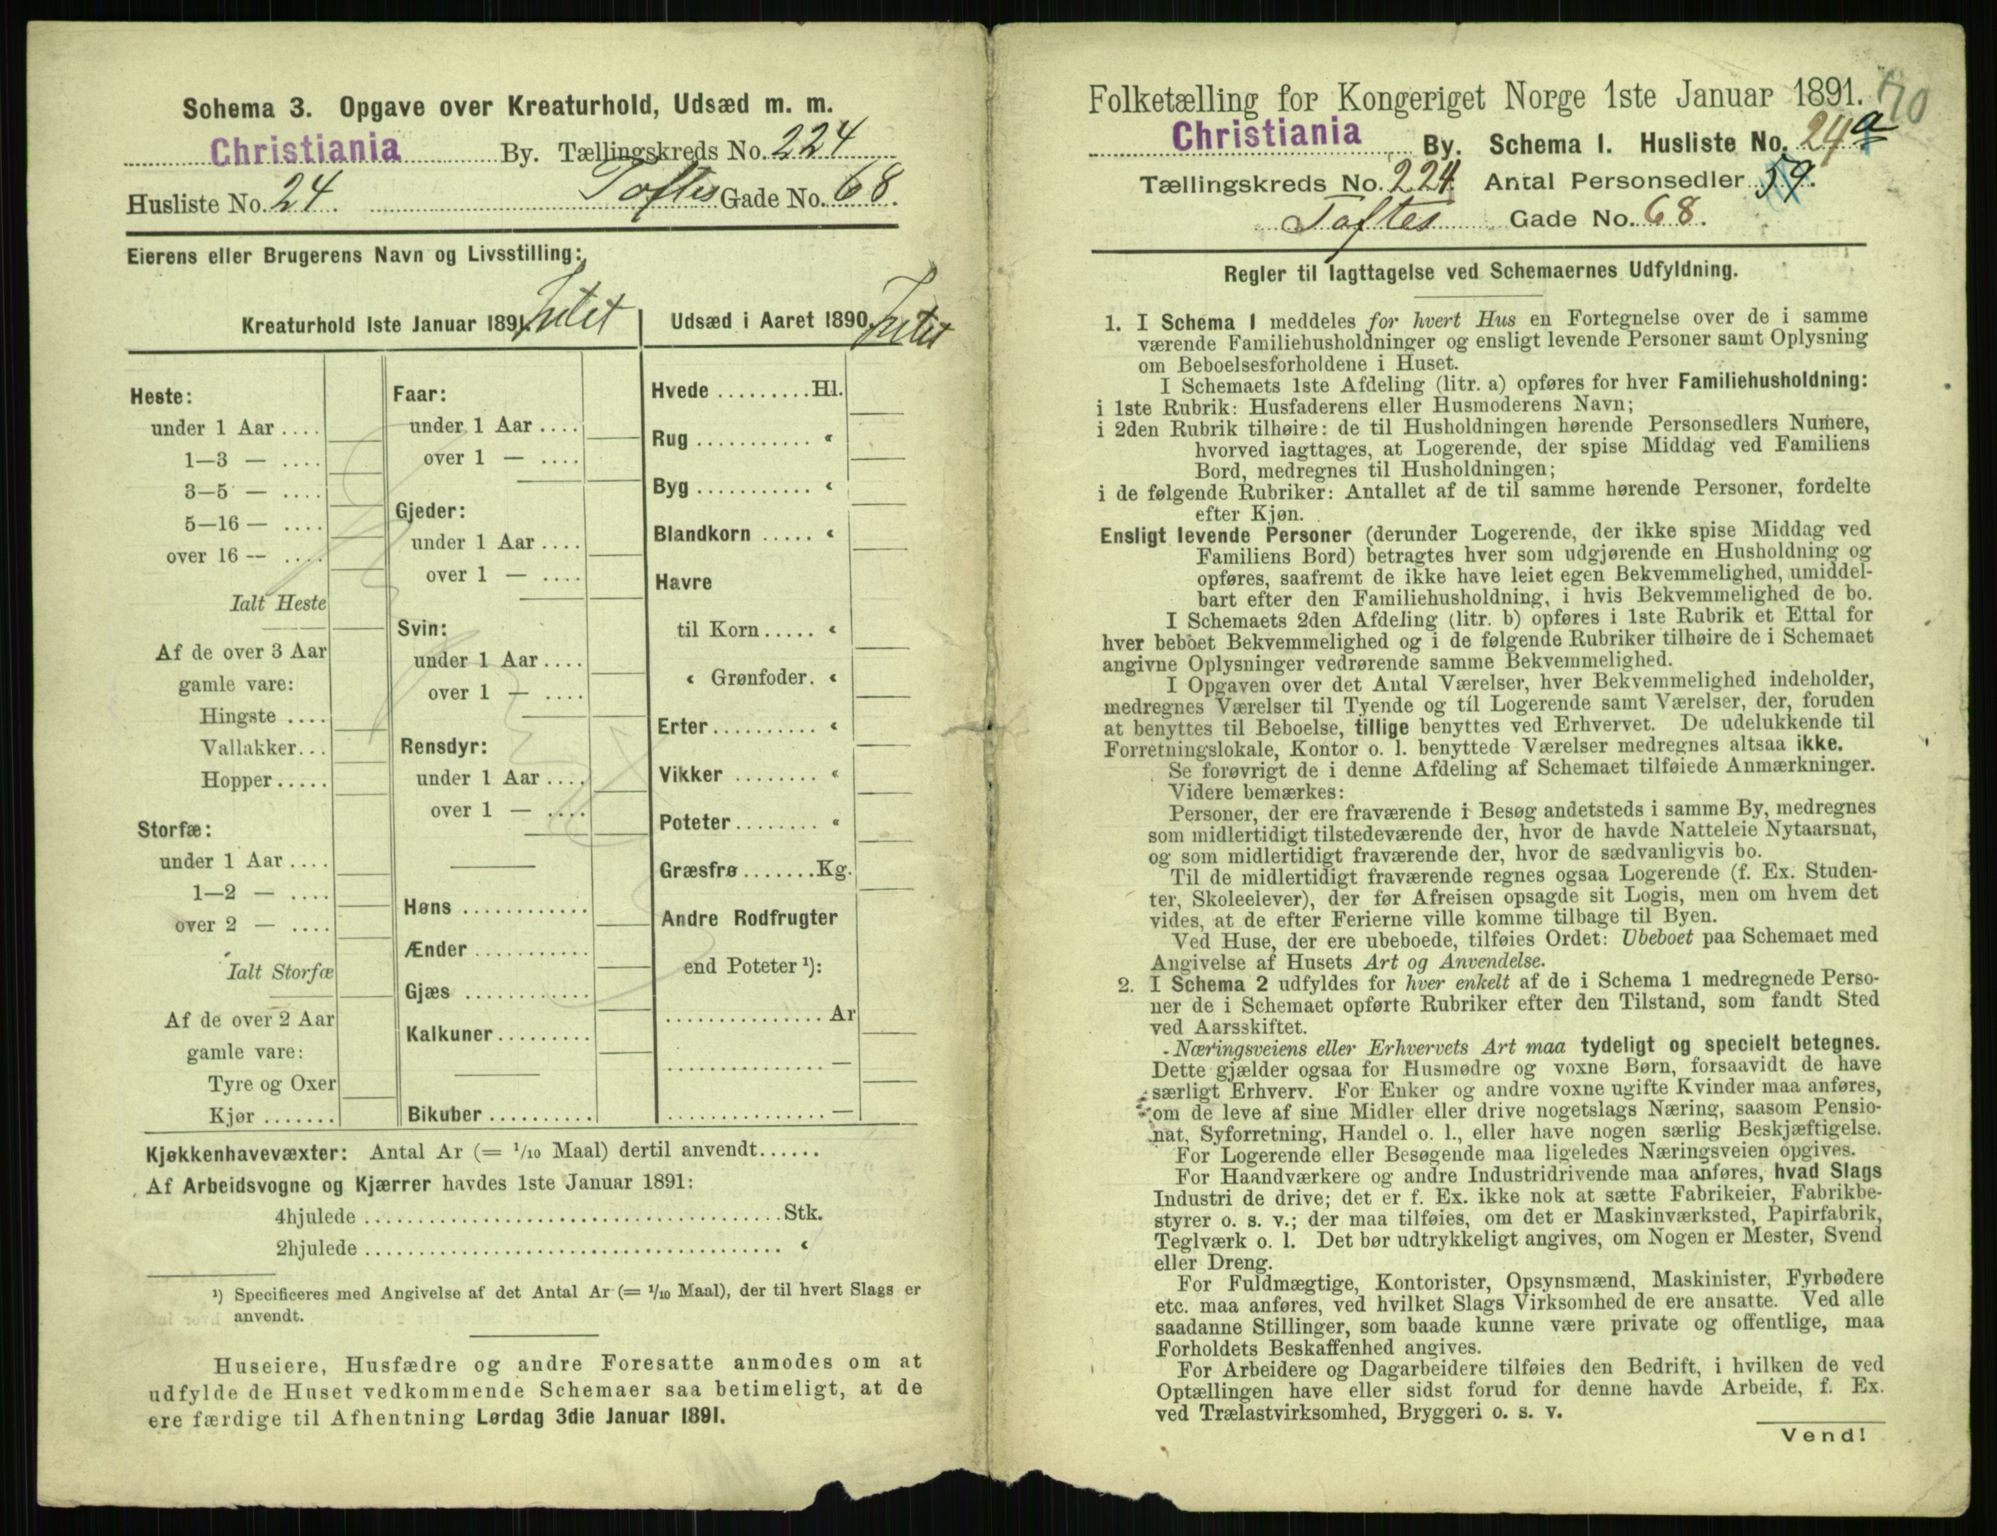 Schema 3. Opgave over Kreaturhold, Udsæd m. m.
Christiania By. Tællingskreds No. 224
Husliste No. 24. Toftes Gade No. 68.
Eierens eller Brugerens Navn og Livsstilling:
Kreaturhold 1ste Januar 1891. Intet
Heste:
under 1 Aar ....
1—3 — ....
3—5 — ....
5—16 — ....
over 16 — ....
Ialt Heste
Af de over 3 Aar
gamle vare:
Hingste ....
Vallakker...
Hopper.....
Storfæ:
under 1 Aar ....
1—2 — ....
over 2 — ....
Ialt Storfæ
Af de over 2 Aar
gamle vare:
Tyre og Oxer
Kjør .......
Faar:
under 1 Aar ....
over 1 — ....
Gjeder:
under 1 Aar ....
over 1 — ....
Svin:
under 1 Aar ....
over 1 — ....
Rensdyr:
under 1 Aar ....
over 1 — ....
Høns ............
Ænder ...........
Gjæs ............
Kalkuner.........
Bikuber ..........
Udsæd i Aaret 1890. Intet
Hvede .........Hl.
Rug ........... «
Byg ........... «
Blandkorn ..... «
Havre
til Korn ..... «
« Grønfoder. «
Erter.......... «
Vikker ........ «
Poteter........ «
Græsfrø.......Kg.
Andre Rodfrugter
end Poteter ¹):
............... Ar
............... —
............... —
Kjøkkenhavevæxter: Antal Ar (= 1/10 Maal) dertil anvendt......
Af Arbeidsvogne og Kjærrer havdes 1ste Januar 1891:
4hjulede ........................................Stk.
2hjulede ........................................ «
¹) Specificeres med Angivelse af det Antal Ar (= 1/10 Maal), der til hvert Slags er
anvendt.
Huseiere, Husfædre og andre Foresatte anmodes om at
udfylde de Huset vedkommende Schemaer saa betimeligt, at de
ere færdige til Afhentning Lørdag 3die Januar 1891.
Folketælling for Kongeriget Norge 1ste Januar 1891.
Christiania By. Schema 1. Husliste No. 24a
Tællingskreds No. 224. Antal Personsedler 59.
Toftes Gade No. 68.
Regler til Iagttagelse ved Schemaernes Udfyldning.
1. I Schema 1 meddeles for hvert Hus en Fortegnelse over de i samme
værende Familiehusholdninger og ensligt levende Personer samt Oplysning
om Beboelsesforholdene i Huset.
I Schemaets 1ste Afdeling (litr. a) opføres for hver Familiehusholdning:
i 1ste Rubrik: Husfaderens eller Husmoderens Navn;
i 2den Rubrik tilhøire: de til Husholdningen hørende Personsedlers Numere,
hvorved iagttages, at Logerende, der spise Middag ved Familiens
Bord, medregnes til Husholdningen;
i de følgende Rubriker: Antallet af de til samme hørende Personer, fordelte
efter Kjøn.
Ensligt levende Personer (derunder Logerende, der ikke spise Middag ved
Familiens Bord) betragtes hver som udgjørende en Husholdning og
opføres, saafremt de ikke have leiet egen Bekvemmelighed, umiddel-
bart efter den Familiehusholdning, i hvis Bekvemmelighed de bo.
I Schemaets 2den Afdeling (litr. b) opføres i 1ste Rubrik et Ettal for
hver beboet Bekvemmelighed og i de følgende Rubriker tilhøire de i Schemaet
angivne Oplysninger vedrørende samme Bekvemmelighed.
I Opgaven over det Antal Værelser, hver Bekvemmelighed indeholder,
medregnes Værelser til Tyende og til Logerende samt Værelser, der, foruden
at benyttes til Beboelse, tillige benyttes ved Erhvervet. De udelukkende til
Forretningslokale, Kontor o. l. benyttede Værelser medregnes altsaa ikke.
Se forøvrigt de i denne Afdeling af Schemaet tilføiede Anmærkninger.
Videre bemærkes:
Personer, der ere fraværende i Besøg andetsteds i samme By, medregnes
som midlertidigt tilstedeværende der, hvor de havde Natteleie Nytaarsnat,
og som midlertidigt fraværende der, hvor de sædvanligvis bo.
Til de midlertidigt fraværende regnes ogsaa Logerende (f. Ex. Studen-
ter, Skoleelever), der før Afreisen opsagde sit Logis, men om hvem det
vides, at de efter Ferierne ville komme tilbage til Byen.
Ved Huse, der ere ubeboede, tilføies Ordet: Ubeboet paa Schemaet med
Angivelse af Husets Art og Anvendelse.
2. I Schema 2 udfyldes for hver enkelt af de i Schema 1 medregnede Perso-
ner de i Schemaet opførte Rubriker efter den Tilstand, som fandt Sted
ved Aarsskiftet.
Næringsveiens eller Erhvervets Art maa tydeligt og specielt betegnes.
Dette gjælder ogsaa for Husmødre og voxne Børn, forsaavidt de have
særligt Erhverv. For Enker og andre voxne ugifte Kvinder maa anføres,
om de leve af sine Midler eller drive nogetslags Næring, saasom Pensio-
nat, Syforretning, Handel o. l., eller have nogen særlig Beskjæftigelse.
For Logerende eller Besøgende maa ligeledes Næringsveien opgives.
For Haandværkere og andre Industridrivende maa anføres, hvad Slags
Industri de drive; det er f. Ex. ikke nok at sætte Fabrikeier, Fabrikbe-
styrer o. s. v.; der maa tilføies, om det er Maskinværksted, Papirfabrik,
Teglværk o. l. Det bør udtrykkeligt angives, om Nogen er Mester, Svend
eller Dreng.
For Fuldmægtige, Kontorister, Opsynsmænd, Maskinister, Fyrbødere
etc. maa anføres, ved hvilket Slags Virksomhed de ere ansatte. Ved alle
saadanne Stillinger, som baade kunne være private og offentlige, maa
Forholdets Beskaffenhed angives.
For Arbeidere og Dagarbeidere tilføies den Bedrift, i hvilken de ved
Optællingen have eller sidst forud for denne havde Arbeide, f. Ex.
ved Trælastvirksomhed, Bryggeri o. s. v.
Vend!